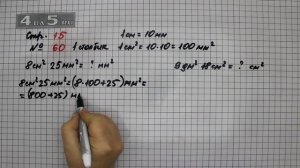 4 ДА 5.ru
Стр. 15
1 см = 10 мм
№ 60 1 столбик 1 см² = 10·10 = 100 мм²
8 см² 25 мм² = ? мм²
8 см² 25 мм² = (8·100+25) мм² =
= (800+25) м